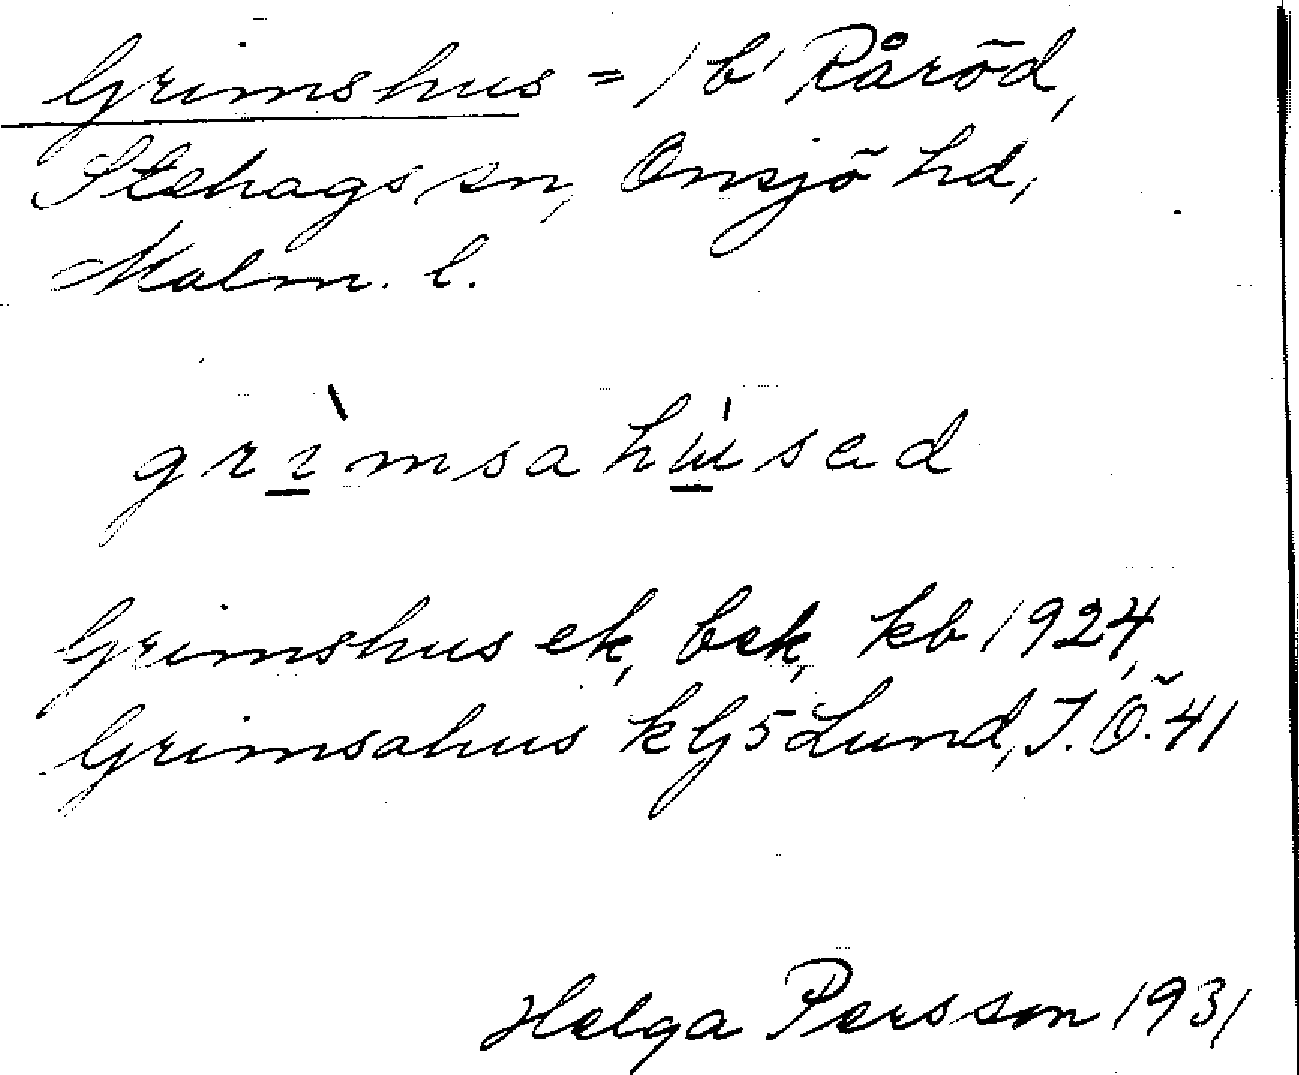 Grimshus = 1 b' Råröd,
Stehags sn, Onsjö hd,
Malm. l.
grìmsahúsed
Grimshus ek, bek, kb 1924,
Grimsahus k Gj 5 Lund, I. Ö. 41
Helga Persson 1931